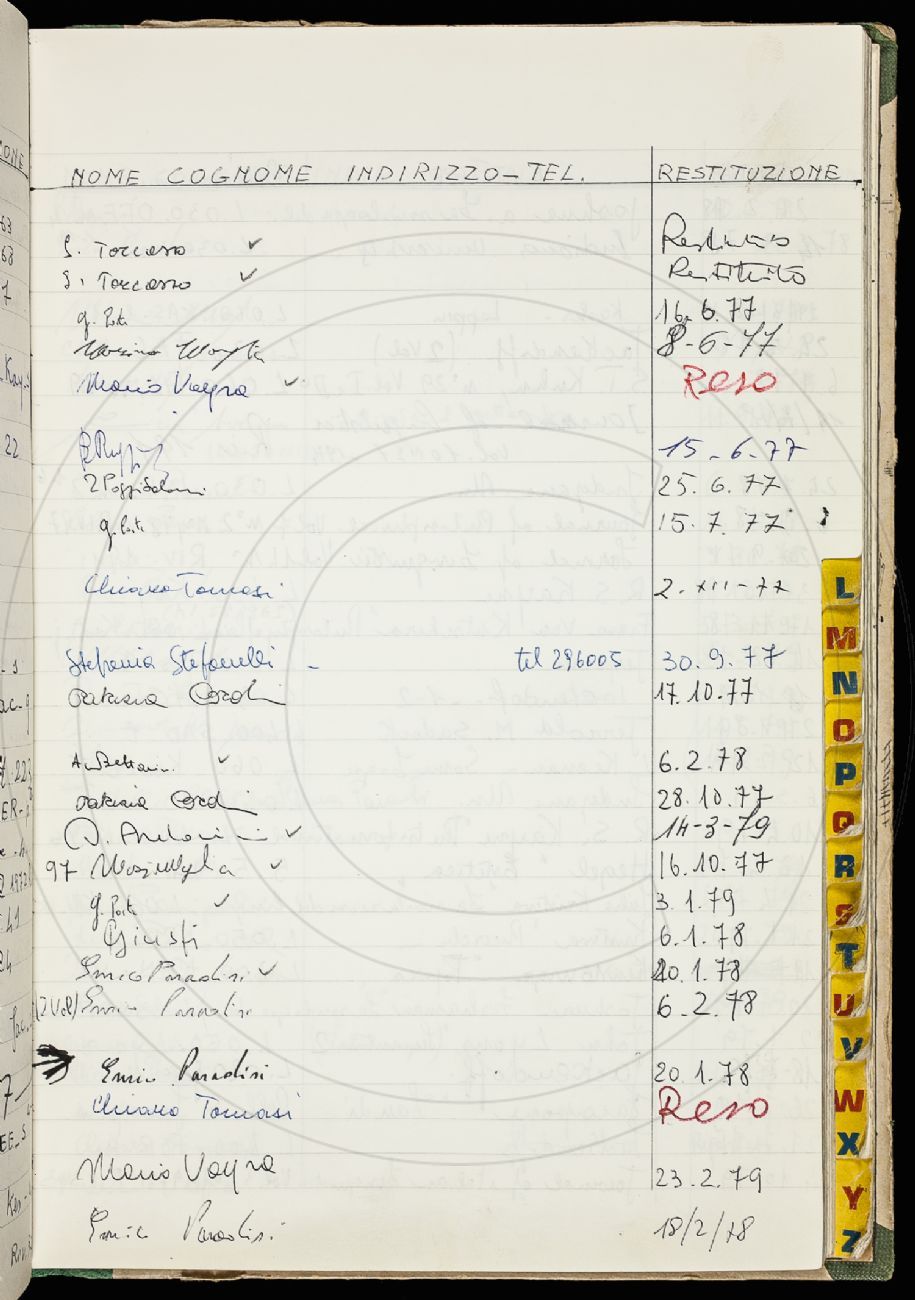 NOME COGNOME INDIRIZZO - TEL. RESTITUZIONE
S. Toccasso ✓ Restituito
S. Toccasso ✓ Restituito
g. Porta 16.6.77
8-6-77
Mario Vayra ✓ Reso
15-6-77
25.6.77
g. Porta 15.7.77
Chiara Tomasi 2-XII-77
Stefania Stefanelli - tel 296005 30.9.77
Patrizia Cordin 17.10.77
6.2.78
Patrizia Cordin 28.10.77
14-3-79
97 ✓ 16.10.77
g. Porta ✓ 3.1.79
Giusti 6.1.78
Enrico Paradisi ✓ 20.1.78
(2 Vol) Enrico Paradisi 6.2.78
Enrico Paradisi 20.1.78
Chiara Tomasi Reso
Mario Vayra 23.2.79
Enrico Paradisi 18/2/78
L
M
N
O
P
Q
R
S
T
U
V
W
X
Y
Z